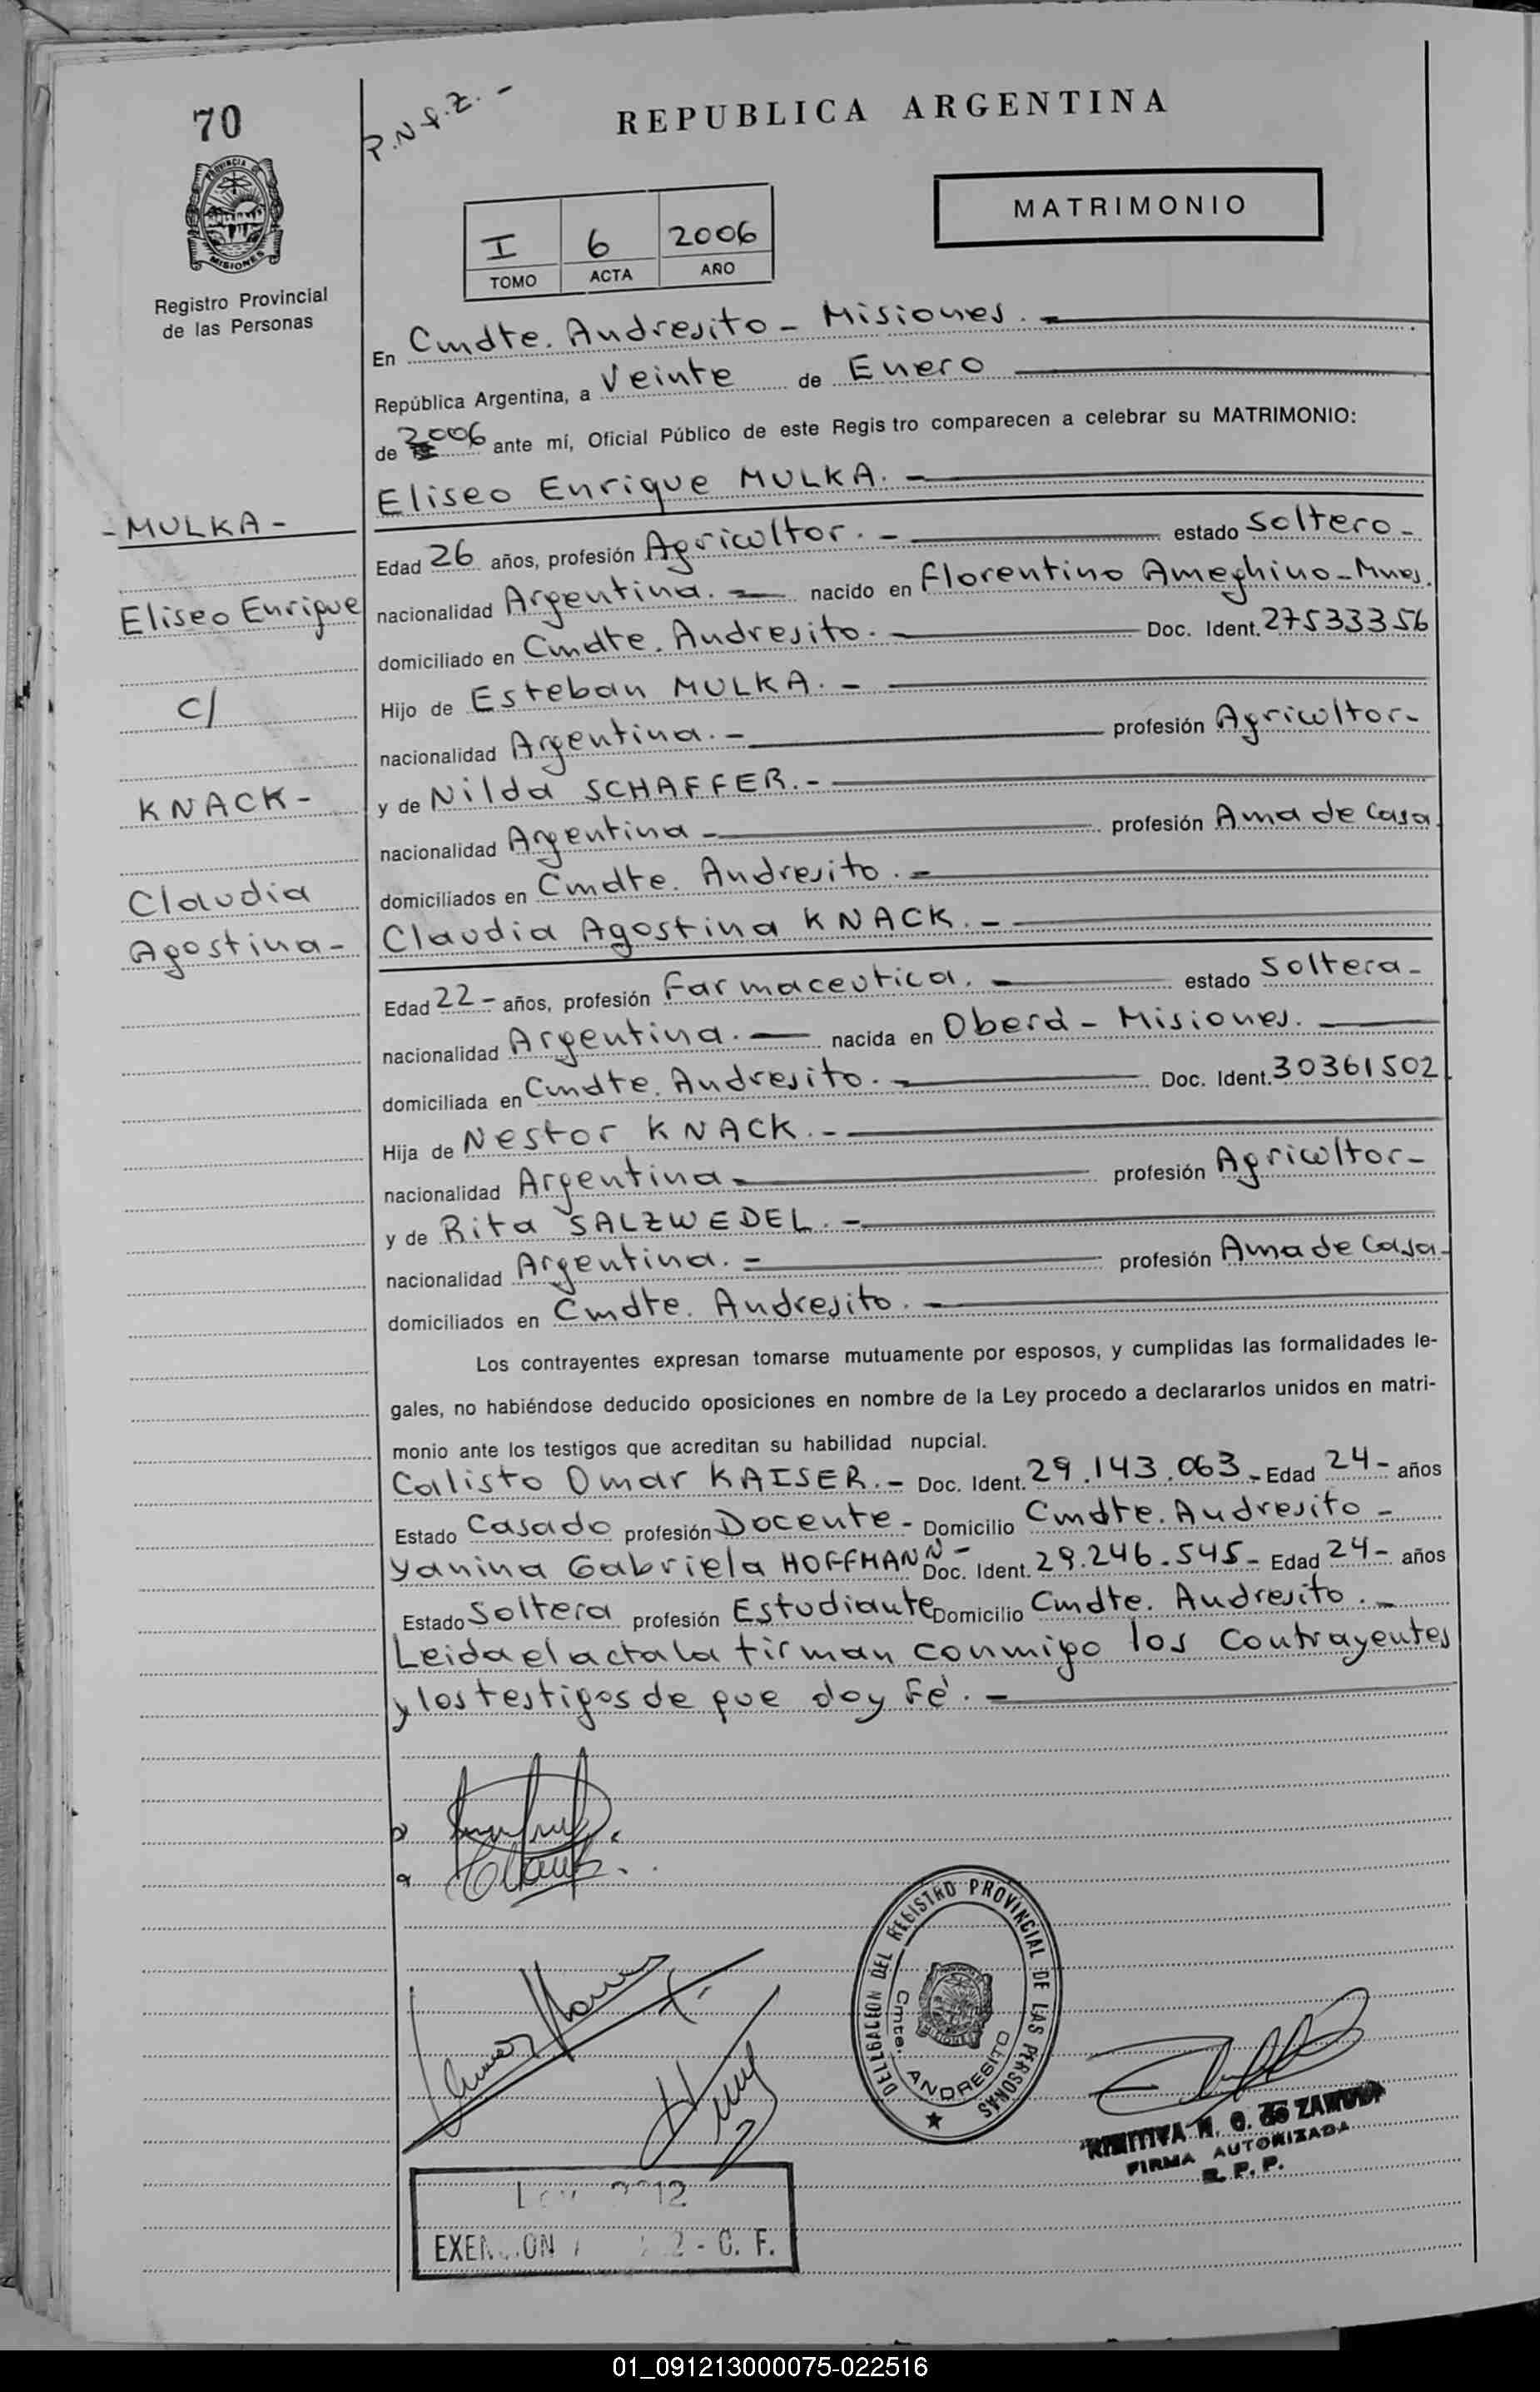 70
P.N.f.Z. -
REPUBLICA ARGENTINA
PROVINCIA DE
MISIONES
Registro Provincial
de las Personas
MATRIMONIO
I 6 2006
TOMO ACTA AÑO
En Cmdte. Andresito - Misiones. -
República Argentina, a Veinte de Enero
de 2006 ante mí, Oficial Público de este Regis tro comparecen a celebrar su MATRIMONIO:
Eliseo Enrique MULKA. -
- MULKA -
Edad 26 años, profesión Agricultor. - estado Soltero -
Eliseo Enrique
nacionalidad Argentina. - nacido en Florentino Ameghino - Mnes.
domiciliado en Cmdte. Andresito. - Doc. Ident. 27533356
c/
Hijo de Esteban MULKA. -
nacionalidad Argentina. - profesión Agricultor -
KNACK -
y de Nilda SCHAFFER. -
nacionalidad Argentina - profesión Ama de Casa.
Claudia
domiciliados en Cmdte. Andresito. -
Agostina -
Claudia Agostina KNACK. -
Edad 22 - años, profesión Farmaceutica. - estado Soltera -
nacionalidad Argentina. - nacida en Oberá - Misiones. -
domiciliada en Cmdte. Andresito. - Doc. Ident. 30361502
Hija de Nestor KNACK. -
nacionalidad Argentina - profesión Agricultor -
y de Rita SALZWEDEL. -
nacionalidad Argentina. - profesión Ama de Casa -
domiciliados en Cmdte. Andresito. -
Los contrayentes expresan tomarse mutuamente por esposos, y cumplidas las formalidades le-
gales, no habiéndose deducido oposiciones en nombre de la Ley procedo a declararlos unidos en matri-
monio ante los testigos que acreditan su habilidad nupcial.
Calisto Omar KAISER. - Doc. Ident. 29.143.063 - Edad 24 - años
Estado Casado profesión Docente - Domicilio Cmdte. Andresito -
Yanina Gabriela HOFFMANN - Doc. Ident. 29.246.545 - Edad 24 - años
Estado Soltera profesión Estudiante Domicilio Cmdte. Andresito. -
Leida el acta la firman conmigo los contrayentes
y los testigos de que doy fé. -
DELEGACION DEL REGISTRO PROVINCIAL DE LAS PERSONAS
Cmte. ANDRESITO
N. G. de
FIRMA AUTORIZADA
R. P. P.
- C. F.
01_091213000075-022516